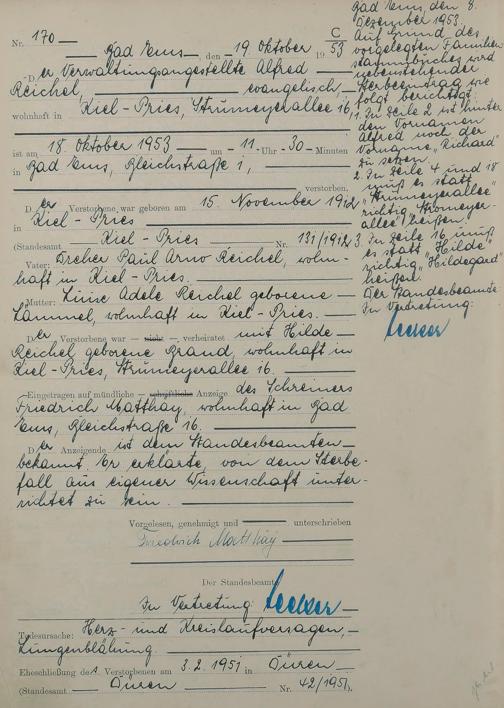 C
Nr. 170
Bad Ems, den 19. Oktober 1953
Der Verwaltungsangestellte Alfred
Reichel, evangelisch,
wohnhaft in Kiel-Pries, Strümeyerallee 16,
ist am 18. Oktober 1953 um 11 Uhr 30 Minuten
in Bad Ems, Bleichstraße 1,
verstorben.
Der Verstorbene war geboren am 15. November 1912
in Kiel-Pries
(Standesamt Kiel-Pries Nr. 131/1912
Vater: Dreher Paul Arno Reichel, wohn-
haft in Kiel-Pries.
Mutter: Line Adele Reichel geborene
Lämmel, wohnhaft in Kiel-Pries.
Der Verstorbene war — nicht — verheiratet mit Hilde
Reichel geborene Brand, wohnhaft in
Kiel-Pries, Strümeyerallee 16.
Eingetragen auf mündliche — schriftliche Anzeige des Schreiners
Friedrich Matthäy, wohnhaft in Bad
Ems, Bleichstraße 16.
Der Anzeigende ist dem Standesbeamten
bekannt. Er erklärte, von dem Sterbe-
fall aus eigener Wissenschaft unter-
richtet zu sein.
Vorgelesen, genehmigt und unterschrieben
Friedrich Matthäy
Der Standesbeamte
In Vertretung: Becker
Todesursache: Herz- und Kreislaufversagen,
Lungenblähung.
Eheschließung des Verstorbenen am 3.2.1951 in Düren
(Standesamt Düren Nr. 42/1951).
Bad Ems, den 8.
Dezember 1953.
Auf Grund des
vorgelegten Familien-
stammbuches wird
nebenstehender
Sterbeeintrag wie
folgt berichtigt:
1. In Zeile 2 ist hinter
den Vornamen
Alfred noch der
Vorname "Richard"
zu setzen.
2. In Zeile 4 und 18
muß es statt
"Strümeyerallee"
richtig "Stromeyer-
allee" heißen.
3. In Zeile 16 muß
es statt "Hilde"
richtig "Hildegard"
heißen.
Der Standesbeamte
In Vertretung:
Becker